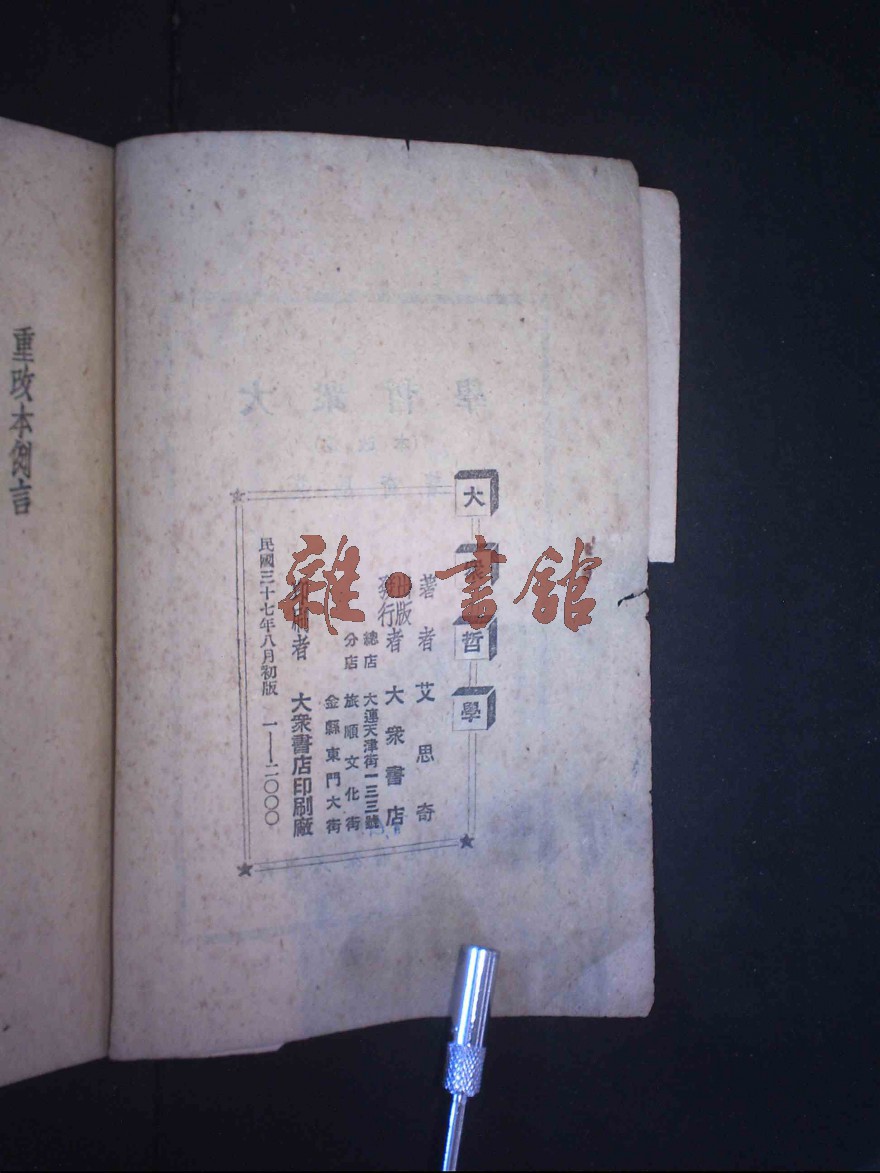 大眾哲學
著者 艾思奇
出版
發行者 大眾書店
總店 大連天津街一三三號
分店 旅順文化街
金縣東門大街
印刷者 大眾書店印刷廠
民國三十七年八月初版 一——二〇〇〇
重改本例言
雜·書館